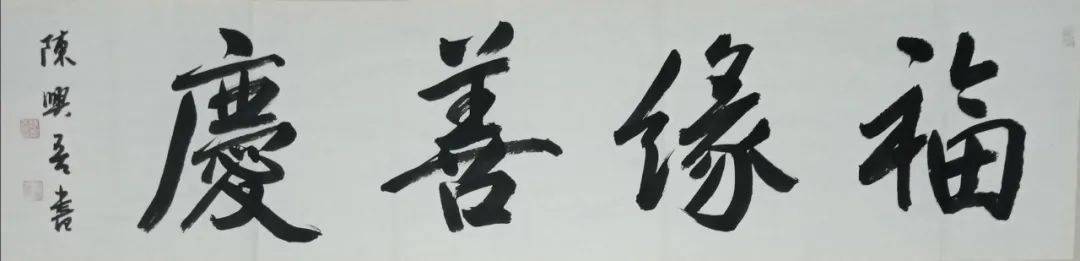 福緣善慶
陳興吾書